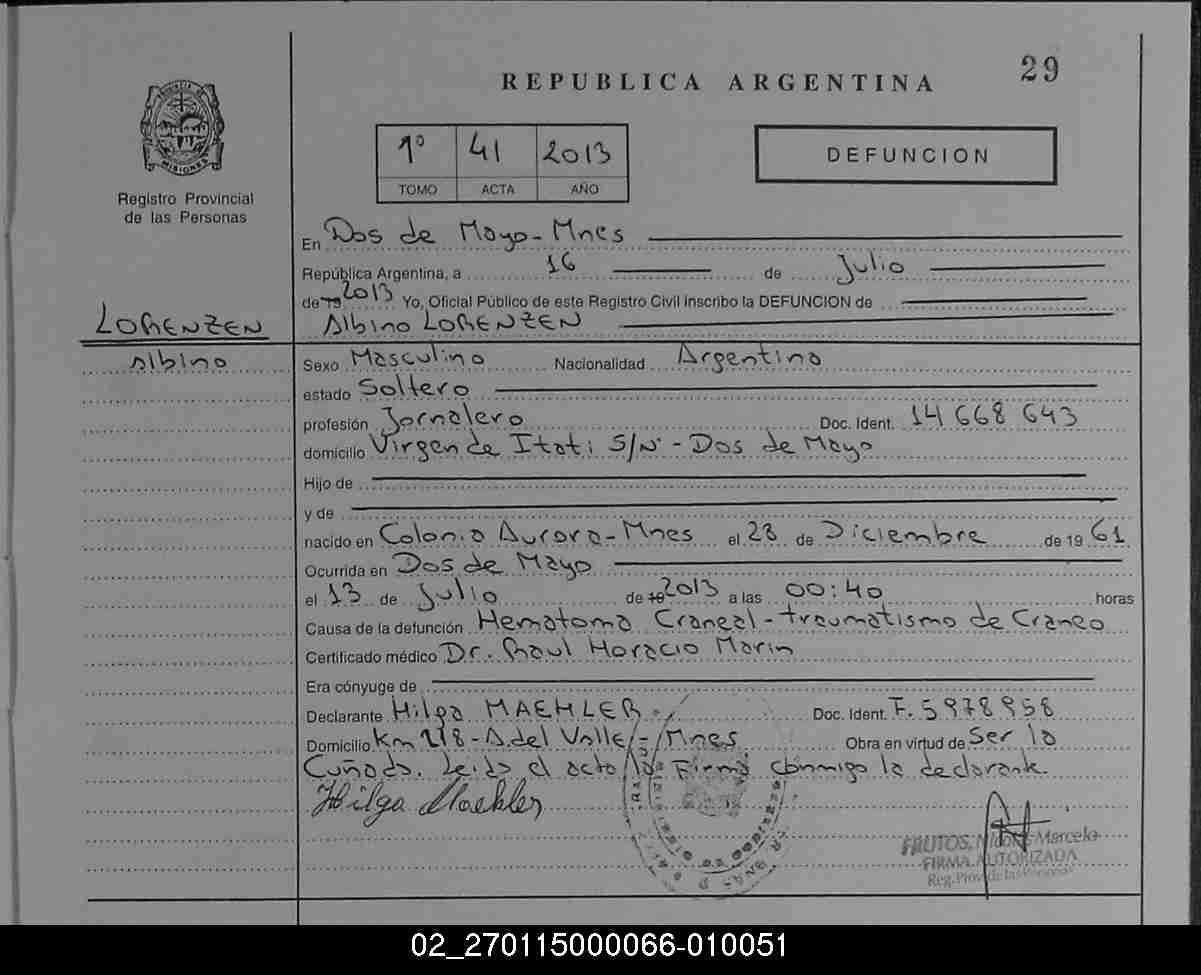 29
REPUBLICA ARGENTINA
MISIONES
Registro Provincial
de las Personas
1º 41 2013
TOMO ACTA AÑO
DEFUNCION
En Dos de Mayo - Mnes
República Argentina, a 16 de Julio
de 19 2013 Yo, Oficial Público de este Registro Civil inscribo la DEFUNCION de
LORENZEN
Albino
Albino LORENZEN
Sexo Masculino Nacionalidad Argentina
estado Soltero
profesión Jornalero Doc. Ident. 14 668 643
domicilio Virgen de Itati S/N - Dos de Mayo
Hijo de
y de
nacido en Colonia Aurora - Mnes el 28 de Diciembre de 19 61
Ocurrida en Dos de Mayo
el 13 de Julio de 19 2013 a las 00:40 horas
Causa de la defunción Hematoma Craneal - traumatismo de Craneo
Certificado médico Dr. Raul Horacio Marin
Era cónyuge de
Declarante Hilga MAEHLER. Doc. Ident. F. 5978958
Domicilio Km 218 - A. del Valle - Mnes Obra en virtud de Ser la
Cuñada. Leida el acta la Firma conmigo la declarante.
Hilga Maehler
FRUTOS, Nicolás Marcelo
FIRMA AUTORIZADA
Reg. Prov. de las Personas
02_270115000066-010051